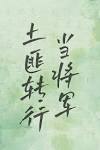 当将军
土匪转行